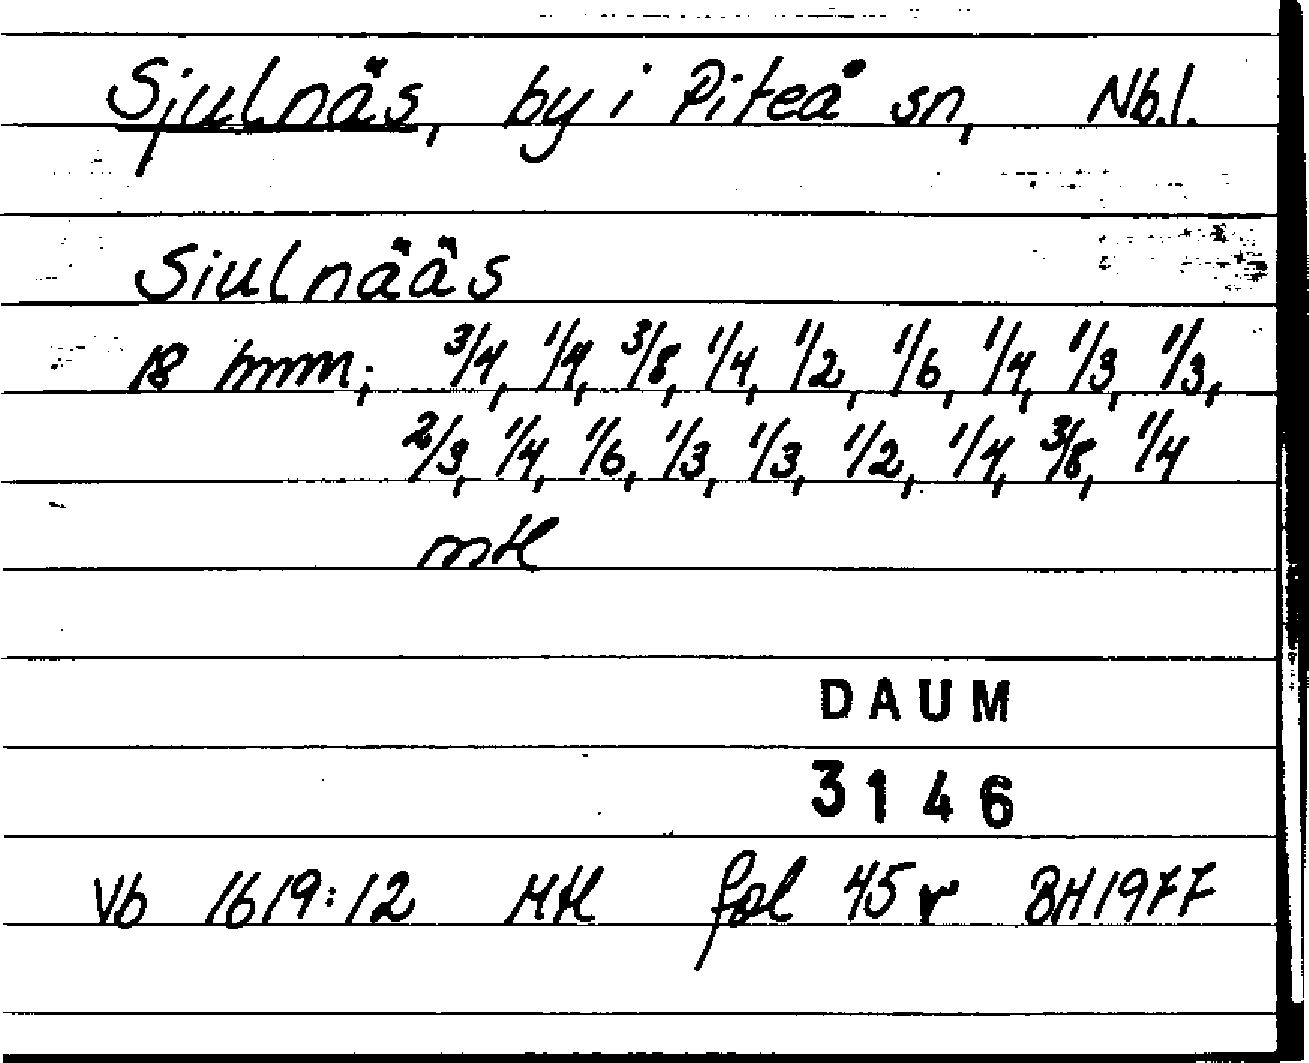 Sjulnäs, by i Piteå sn, Nb.l.
Siulnääs
18 hmm; 3/4, 1/4, 3/8, 1/4, 1/2, 1/6, 1/4, 1/3, 1/3,
2/3, 1/4, 1/6, 1/3, 1/3, 1/2, 1/4, 3/8, 1/4
mtl
DAUM
3146
Vb 1619:12 Mtl fol 45 v BH1977